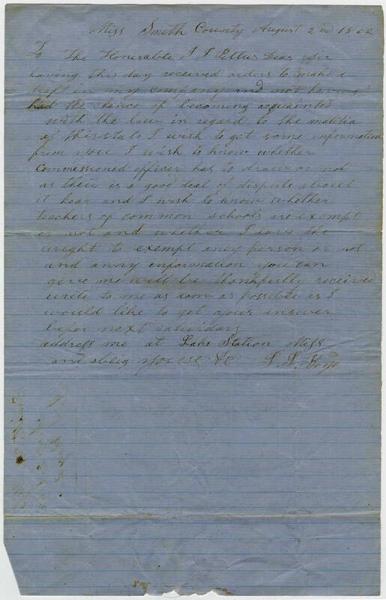 Miss Smith County August 2nd 1862
To The Honerable J J Pettus Dear Sir
having this day received orders to make a
draft in my company and not having
had the chance of becoming acquainted
with the law in regard to the malitia
of this state I wish to get some information
from you I wish to know whether
commissioned officer has to draw or not
as their is a good deal of dispute about
it hear and I wish to know whether
teachers of common schools are exempt
or not and whether I have the
wright to exempt eney person or not
and anny information you can
give me will be thankfully received
write to me as soon as possible as I
would like to get your answer
befor next saturday
address me at Lake Station Miss
and oblig yours &C